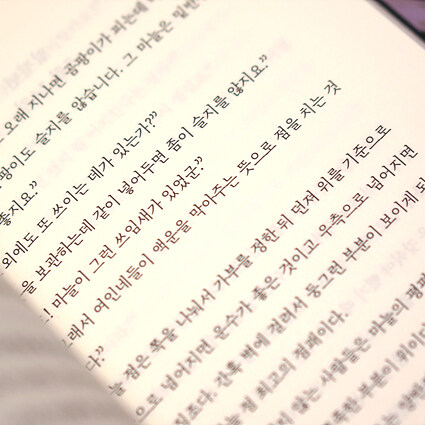 오래 지나면 곰팡이가 피는데
팡이도 슬지를 않습니다. 그 마늘은
좋지요.”
외에도 또 쓰이는 데가 있는가?”
을 보관하는데 같이 넣어두면 좀이 슬지를 않지요.”
! 마늘이 그런 쓰임새가 있었군.”
래서 여인네들이 액운을 막아주는 뜻으로 점을 치는 것
다.”
늘 점은 쪽을 나눠서 가부를 정한 뒤 던져 위를 기준으로
으로 넘어지면 운수가 좋은 것이고 우측으로 넘어지면
조다. 간혹 벽에 걸려서 둥그런 부분이 보이게
늘 점 최고의 점괘이다.
지 않는 사람들은 마늘의
부분이